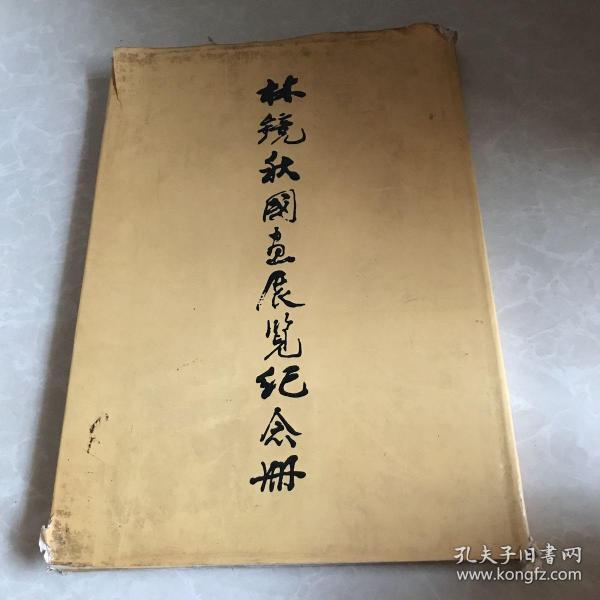 林镜秋國画展览纪念册
孔夫子旧書网
www.kongfz.com